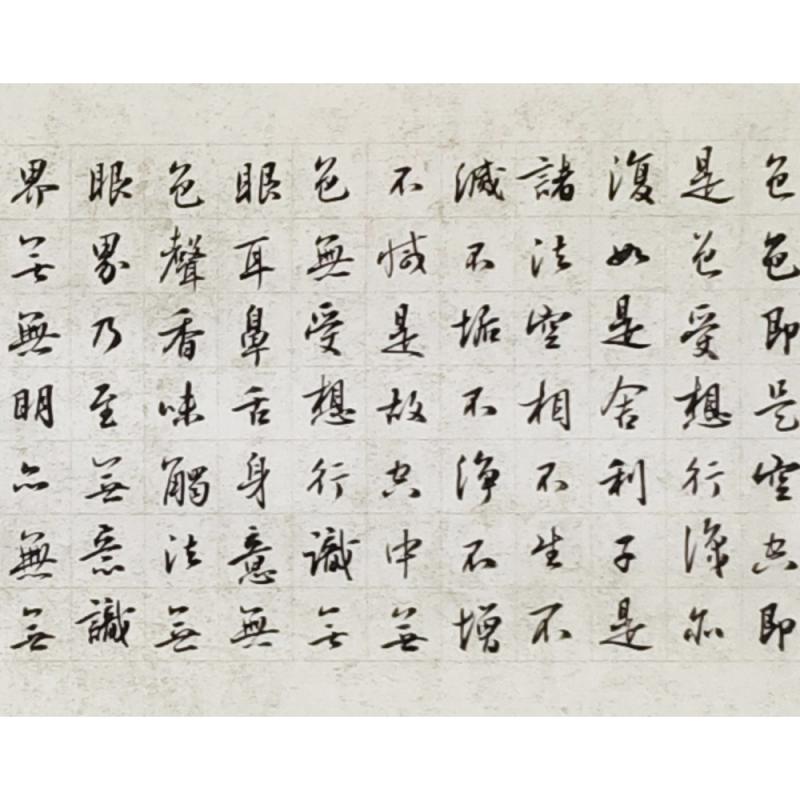 色色即是空空即
是色受想行識亦
復如是舍利子是
諸法空相不生不
滅不垢不淨不增
不減是故空中無
色無受想行識無
眼耳鼻舌身意無
色聲香味觸法無
眼界乃至無意識
界無無明亦無無